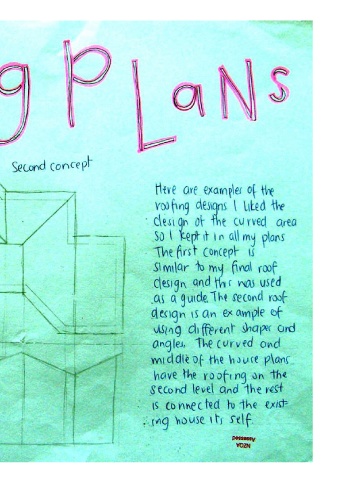 g PLaNs
Second concept
Here are examples of the
roofing designs I liked the
design of the curved area
So I kept it in all my plans
The first concept is
similar to my final roof
design, and this was used
as a guide. The second roof
design is an example of
using different shapes and
angles. The curved and
middle of the house plans
have the roofing on the
second level and the rest
is connected to the exist-
ing house its self.